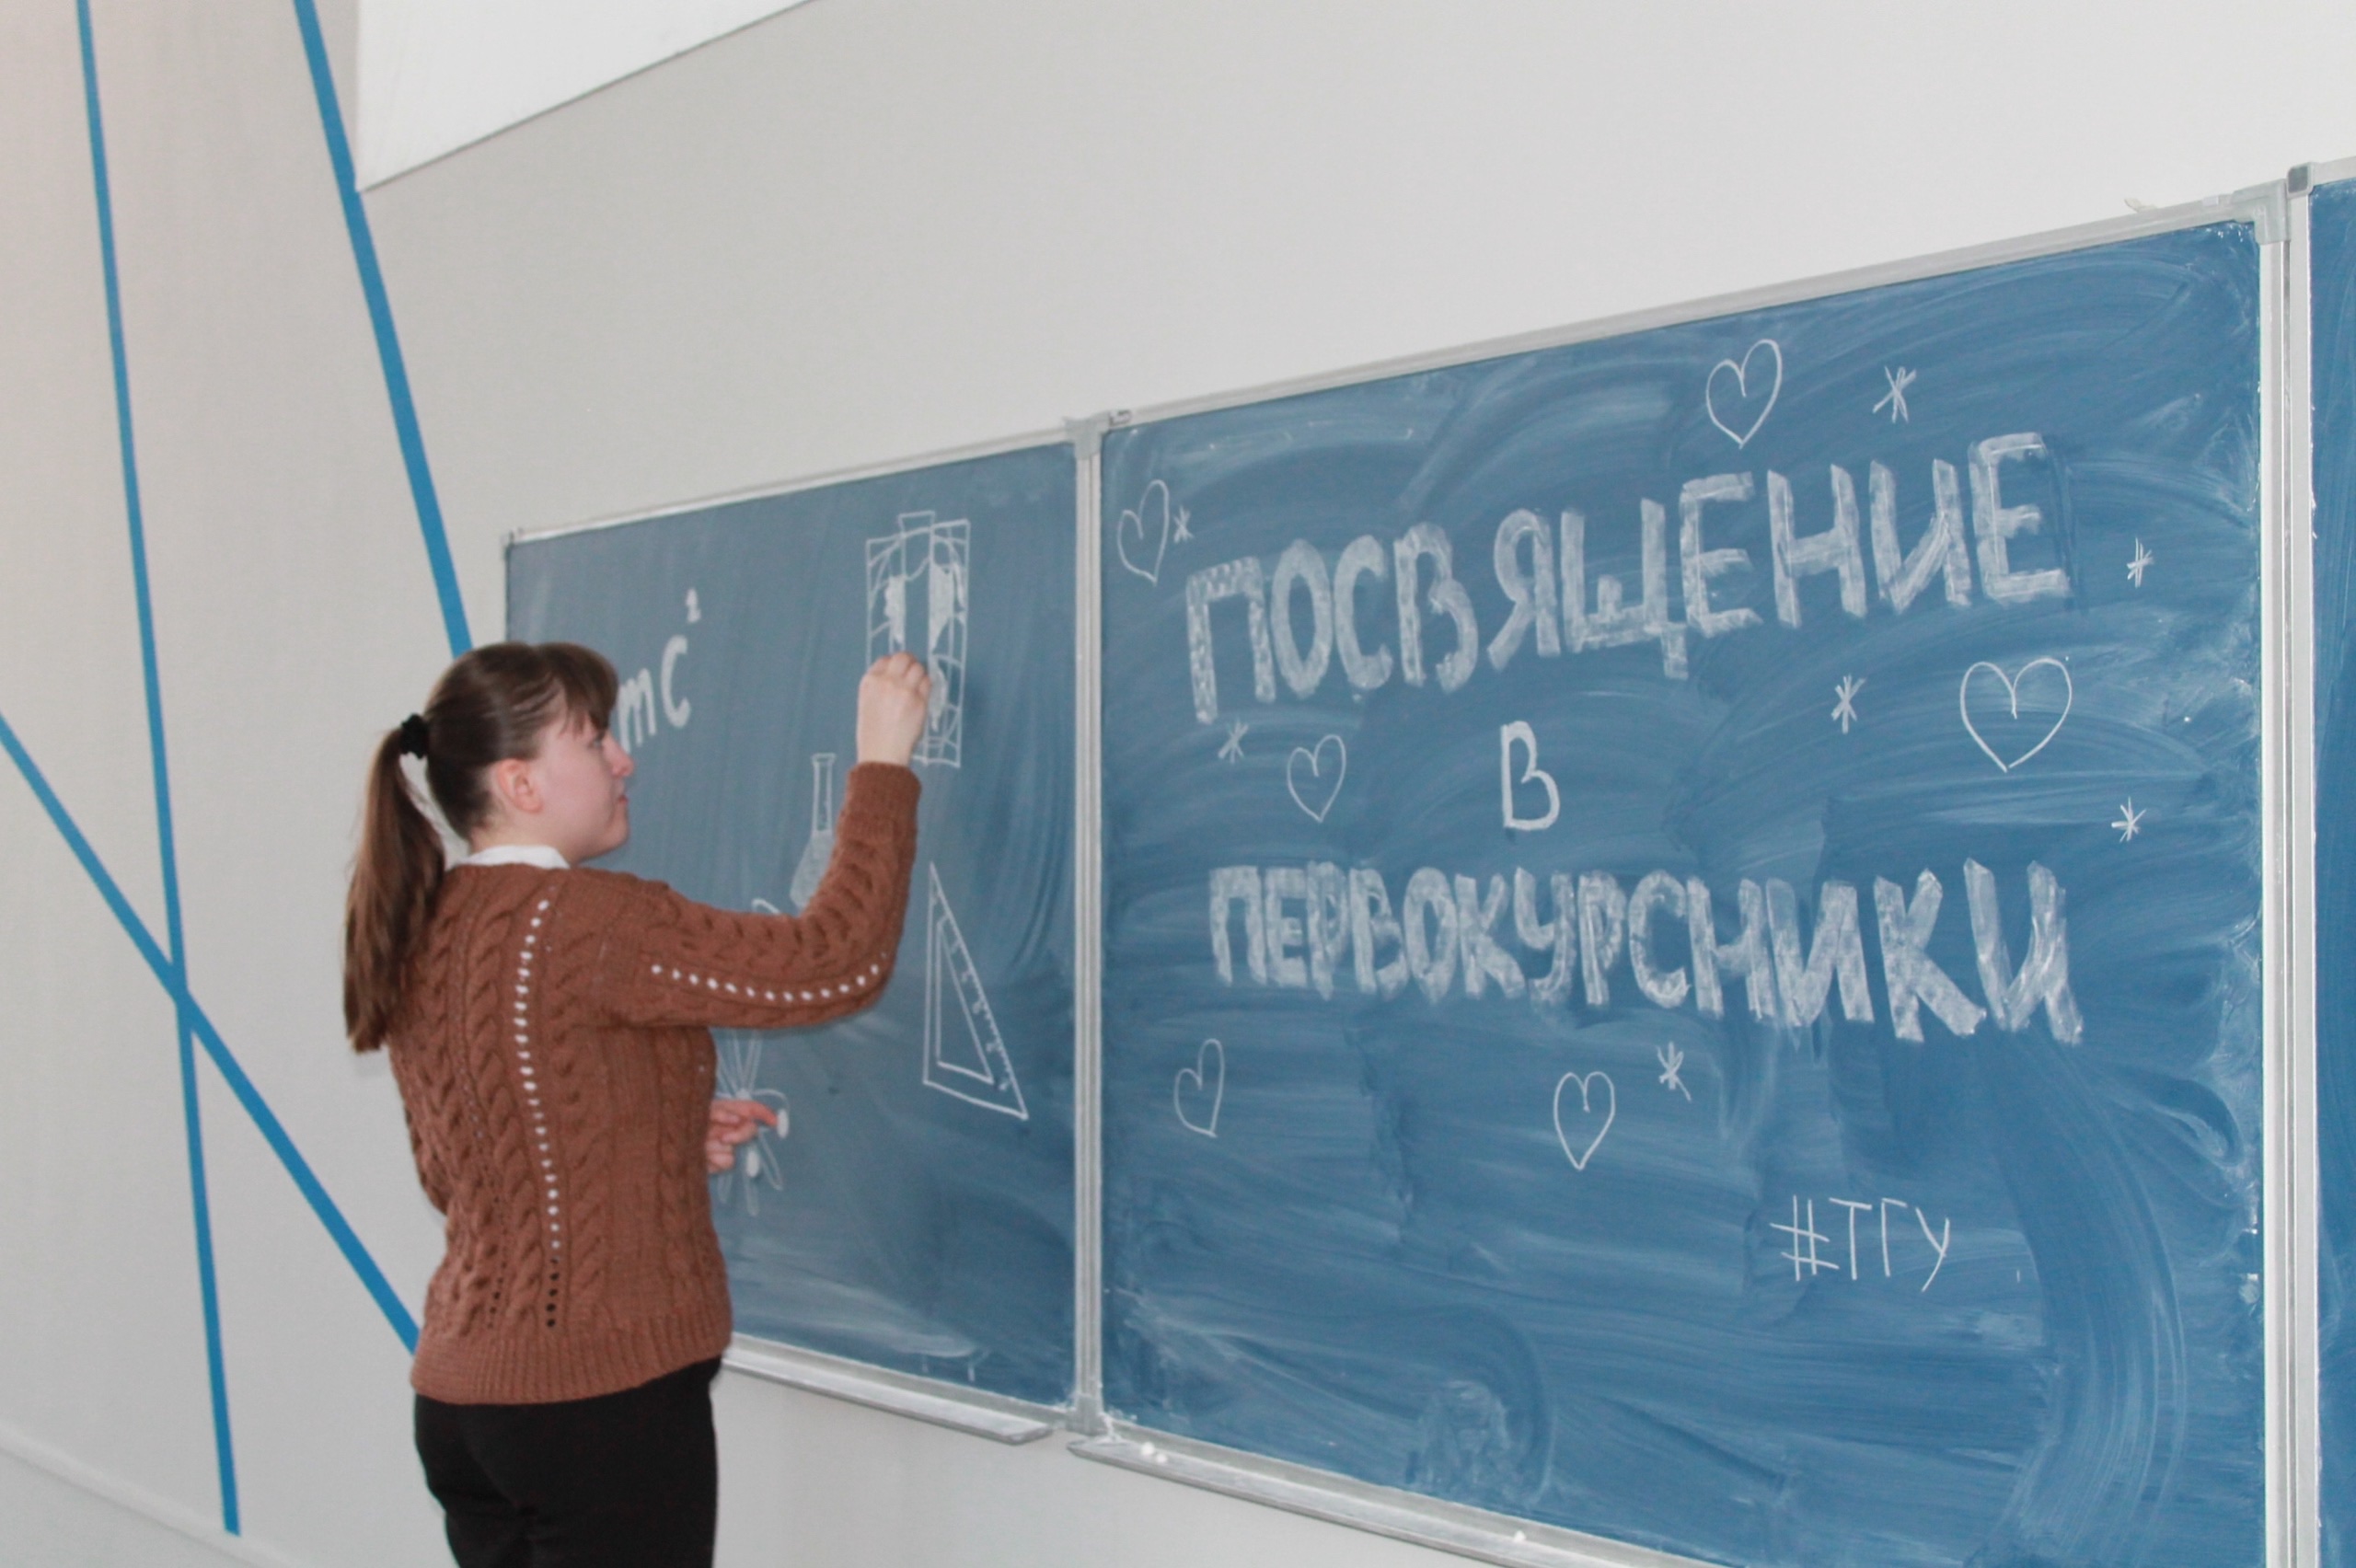 mc²
ПОСВЯЩЕНИЕ
В
ПЕРВОКУРСНИКИ
#ТГУ